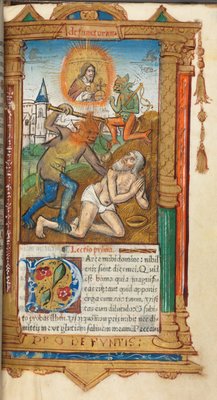 defunctorum
¶ Lectio prima.
Parce mihi domine nihil
enim sunt dies mei. Quid
est homo quia magnifi
cas eum aut quid apponis
erga eum cor tuum. Visi
tas eum diluculo &
subito probas illum. Vsquequo non parcis mihi nec di
mittis me vt glutiam saliuam meam. Peccaui
PRO DEFUNTIS: